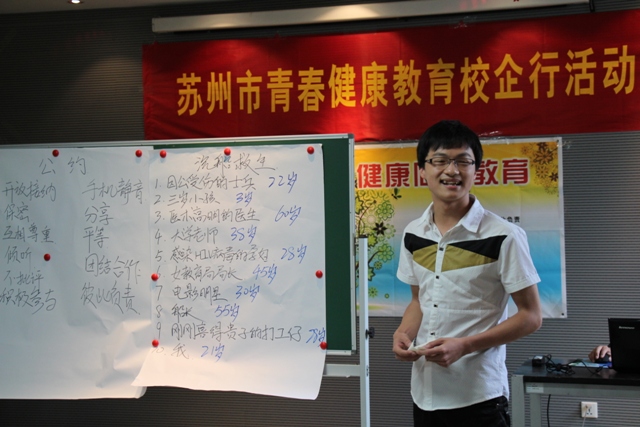 苏州市青春健康教育校企行活动
健康 教育
公约
开放接纳 手机静音
保密 分享
互相尊重 平等
倾听 团结合作
不批评 彼此负责
积极参与
沉船救生
1. 因公受伤的士兵 22岁
2. 三岁小孩 3岁
3. 医术高明的医生 60岁
4. 大学老师 38岁
5. 感染HIV病毒的 28岁
6. 女教育局局长 45岁
7. 电影明星 30岁
8. 船长 55岁
9. 刚刚喜得贵子的打工仔
10 我 21岁
lenovo